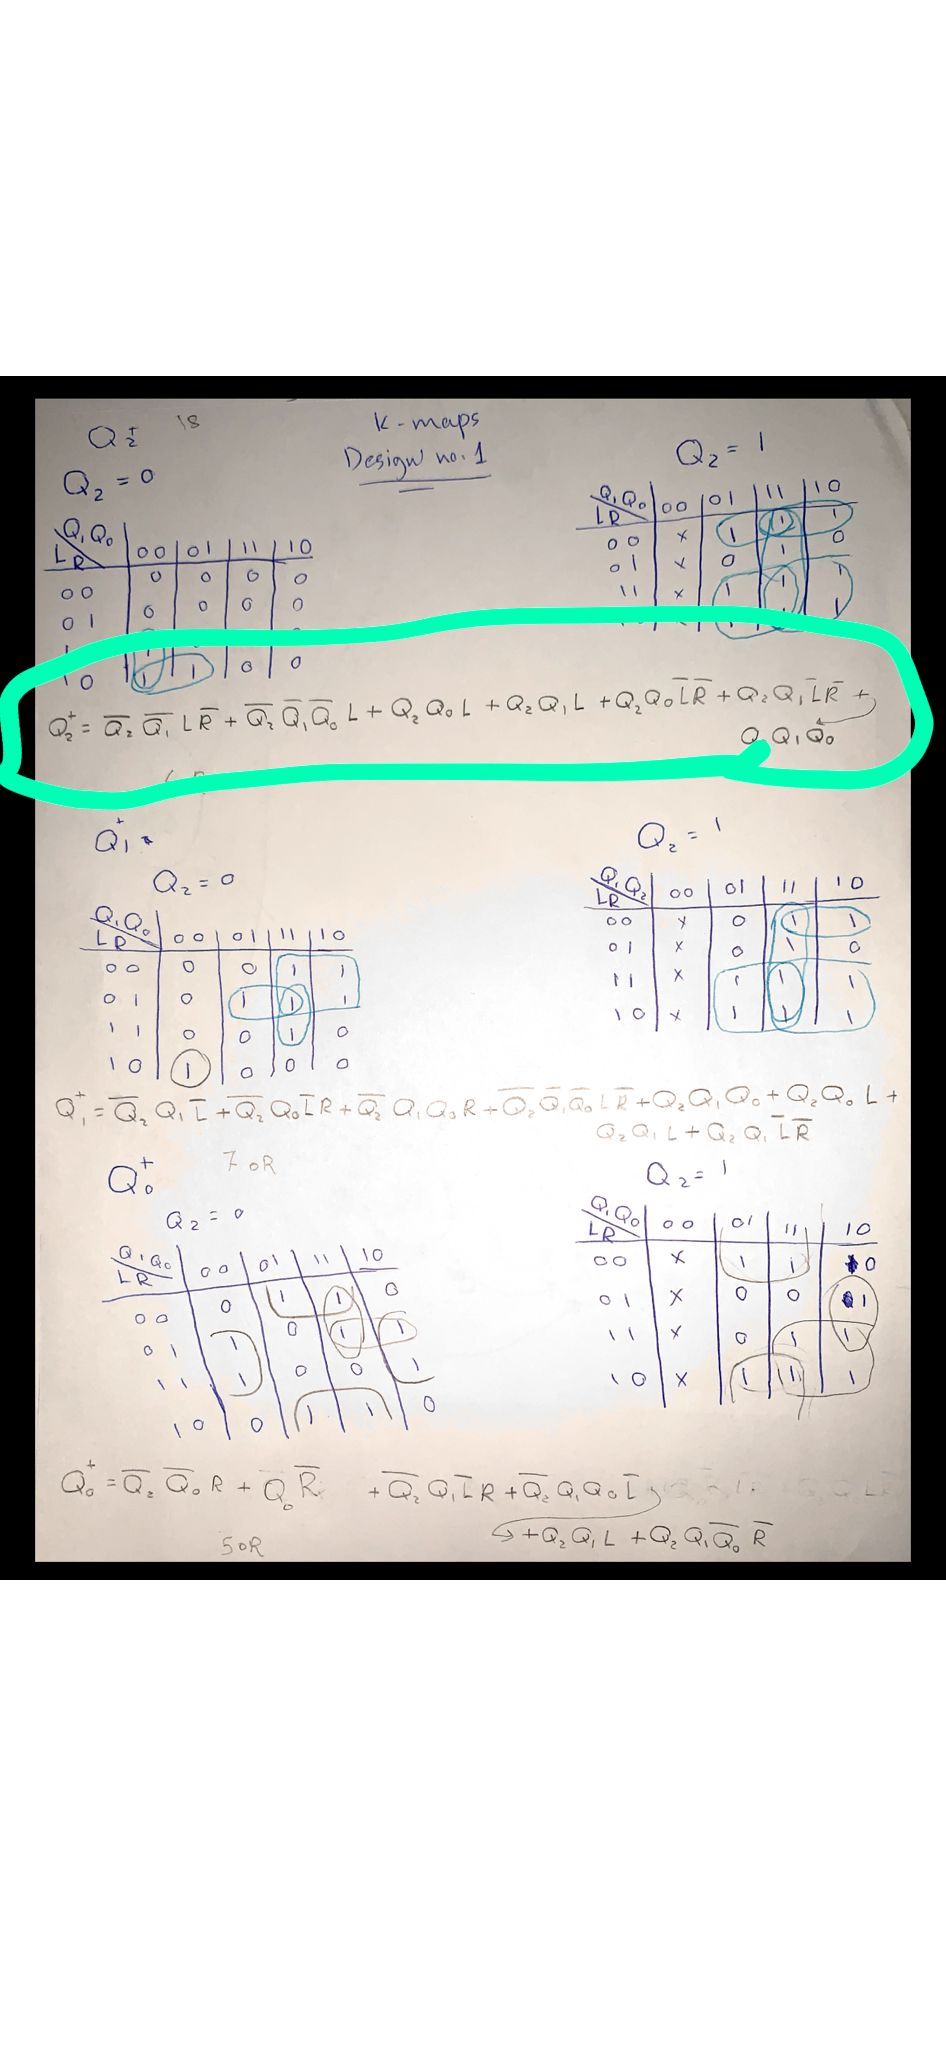 Q₂⁺ 18
K-maps
Design no. 1
Q₂ = 0
Q₂ = 1
Q₁Q₀ 00 01 11 10
LR
00 0 0 0 0
01 0 0 0 0
1 1
10 1 1 0 0
Q₁Q₀ 00 01 11 10
LR
00 x 1 1 1
01 x 0 1 0
11 x 1 1 1
1 1
Q₂⁺ = Q̅₂ Q̅₁ L R̅ + Q̅₂ Q̅₁ Q̅₀ L + Q₂ Q₀ L + Q₂ Q₁ L + Q₂ Q₀ L̅ R̅ + Q₂ Q₁ L̅ R̅ +
Q Q₁ Q₀
Q₁⁺
Q₂ = 0
Q₂ = 1
Q₁Q₀ 00 01 11 10
LR
00 0 0 1 1
01 0 1 1 1
11 0 0 1 0
10 1 0 0 0
Q₁Q₂ 00 01 11 10
LR
00 x 0 1 1
01 x 0 1 0
11 x 1 1 1
10 x 1 1 1
Q₁⁺ = Q̅₂ Q₁ L̅ + Q̅₂ Q₀ L̅ R + Q̅₂ Q₁ Q₀ R + Q̅₂ Q̅₁ Q̅₀ L R̅ + Q₂ Q₁ Q₀ + Q₂ Q₀ L +
Q₂ Q₁ L + Q₂ Q₁ L̅ R̅
7 OR
Q₀⁺
Q₂ = 0
Q₂ = 1
Q₁Q₀ 00 01 11 10
LR
00 0 1 1 0
01 1 0 1 1
11 1 0 0 1
10 0 1 1 0
Q₁Q₀ 00 01 11 10
LR
00 x 1 1 0
01 x 0 0 1
11 x 0 1 1
10 x 1 1 1
Q₀⁺ = Q̅₂ Q̅₀ R + Q₀ R̅ + Q̅₂ Q₁ L̅ R + Q̅₂ Q₁ Q₀ L̅
+ Q₂ Q₁ L + Q₂ Q₁ Q̅₀ R̅
5 OR